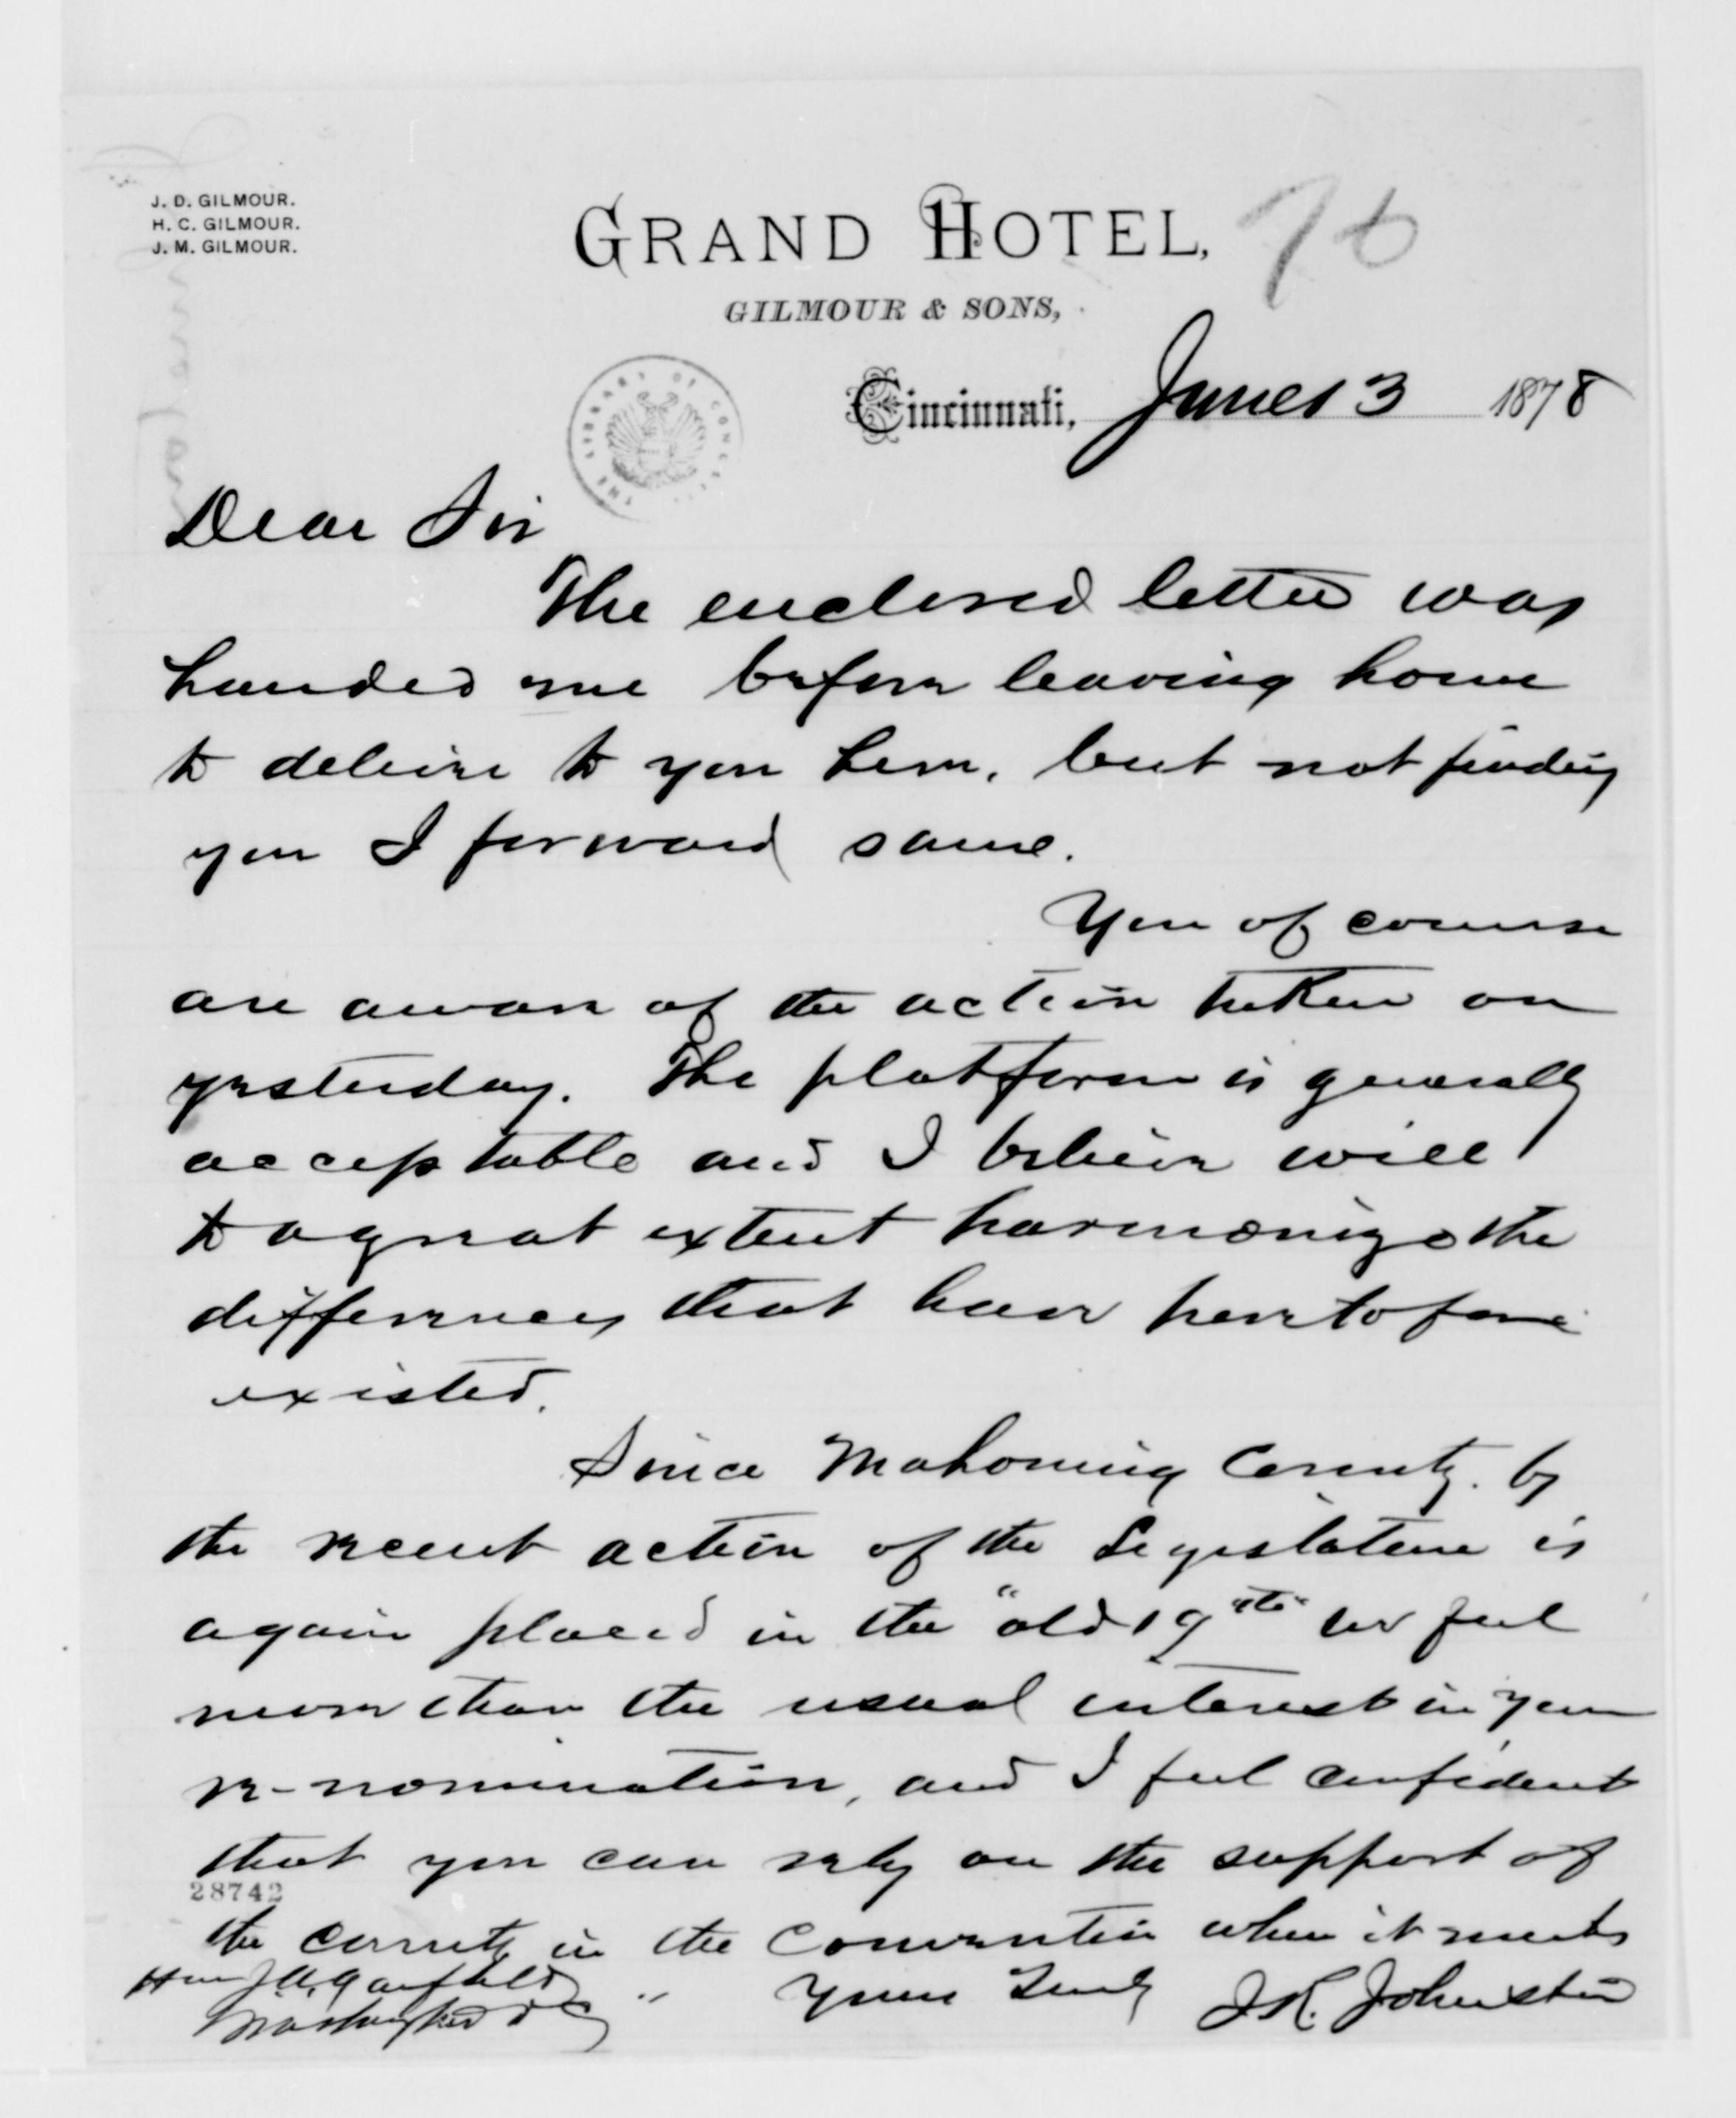 J. D. GILMOUR.
H. C. GILMOUR.
J. M. GILMOUR.
GRAND HOTEL,
76
GILMOUR & SONS,
Cincinnati, June 13 1878
THE LIBRARY OF CONGRESS
Dear Sir
The enclosed letter was
handed me before leaving home
to deliver to you here, but not finding
you I forward same.
You of course
are aware of the action taken on
yesterday. The platform is generally
acceptable and I believe will
to a great extent harmonize the
differences that have heretofore
existed.
Since Mahoning County by
the recent action of the Legislature is
again placed in the "old 19th" we feel
more than the usual interest in your
re-nomination, and I feel confident
that you can rely on the support of
28742
the county in the Convention when it meets
Hon J. A. Garfield " Yours Truly J. R. Johnston
Washington D C